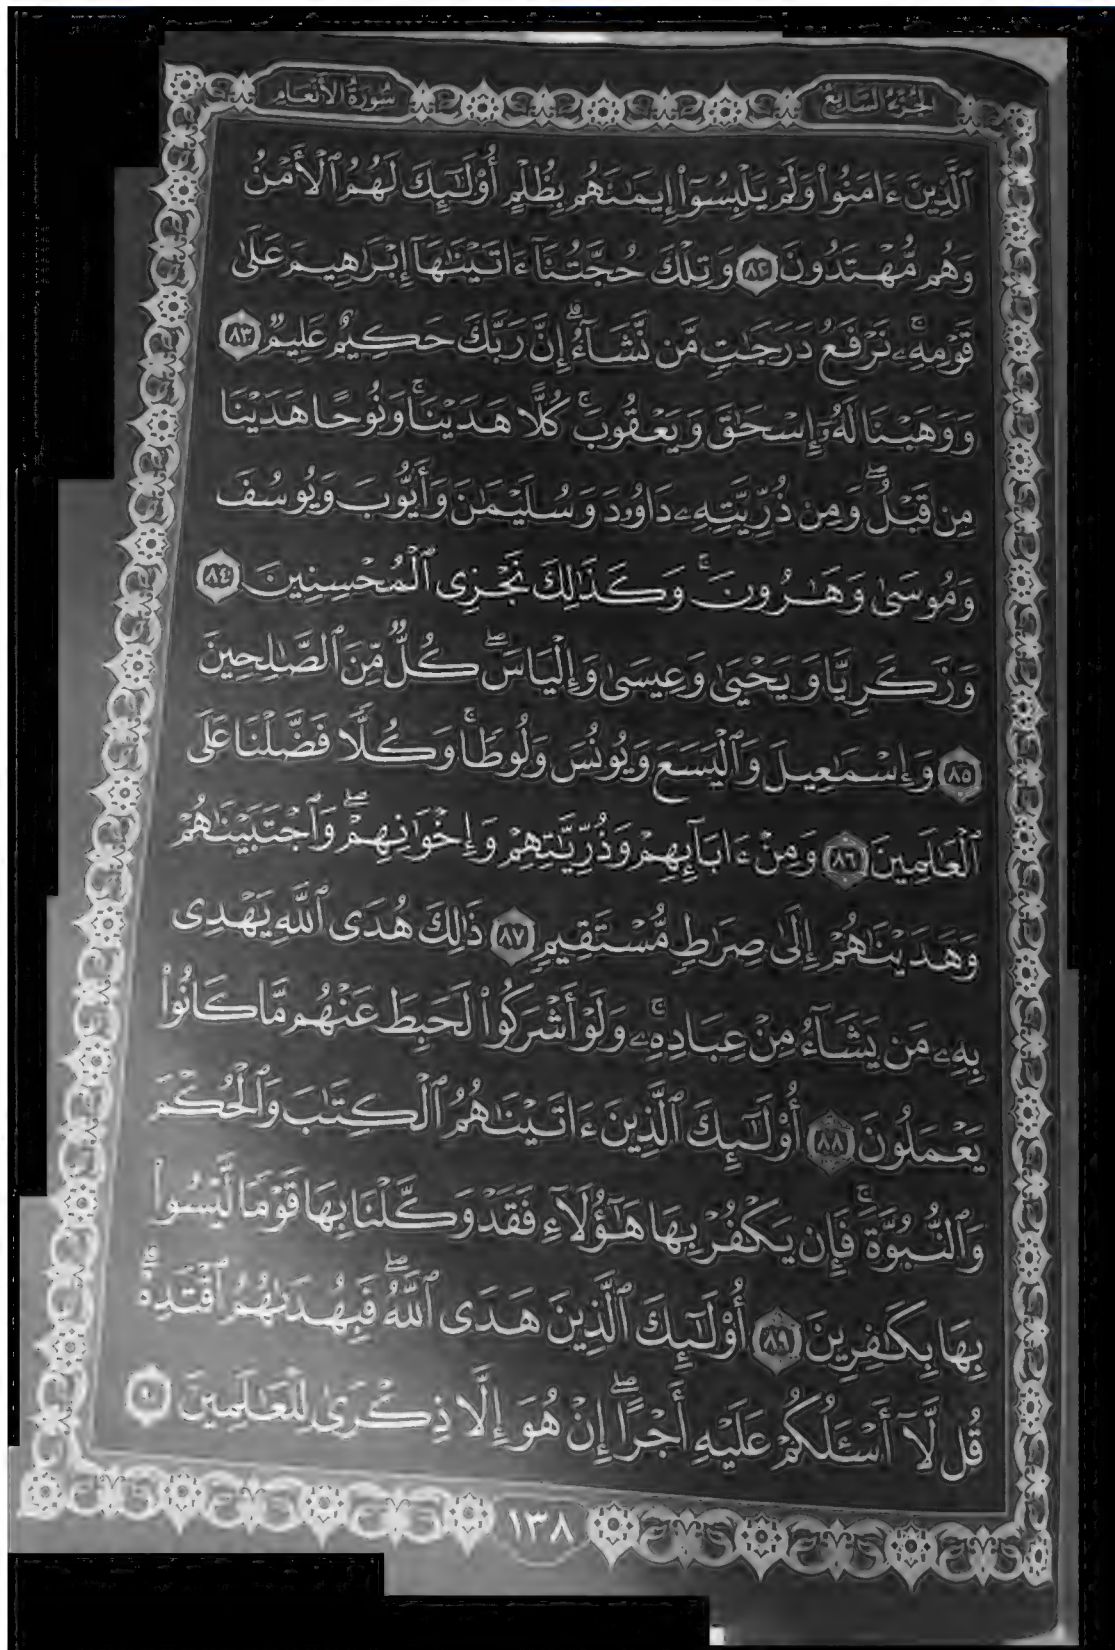 الجزء السابع
سورة الأنعام
ٱلَّذِينَ ءَامَنُواْ وَلَمْ يَلْبِسُوٓاْ إِيمَٰنَهُم بِظُلْمٍ أُوْلَٰٓئِكَ لَهُمُ ٱلْأَمْنُ
وَهُم مُّهْتَدُونَ ٨٢ وَتِلْكَ حُجَّتُنَآ ءَاتَيْنَٰهَآ إِبْرَٰهِيمَ عَلَىٰ
قَوْمِهِۦۚ نَرْفَعُ دَرَجَٰتٍ مَّن نَّشَآءُۗ إِنَّ رَبَّكَ حَكِيمٌ عَلِيمٌ ٨٣
وَوَهَبْنَا لَهُۥٓ إِسْحَٰقَ وَيَعْقُوبَۚ كُلًّا هَدَيْنَاۚ وَنُوحًا هَدَيْنَا
مِن قَبْلُۖ وَمِن ذُرِّيَّتِهِۦ دَاوُۥدَ وَسُلَيْمَٰنَ وَأَيُّوبَ وَيُوسُفَ
وَمُوسَىٰ وَهَٰرُونَۚ وَكَذَٰلِكَ نَجْزِى ٱلْمُحْسِنِينَ ٨٤
وَزَكَرِيَّا وَيَحْيَىٰ وَعِيسَىٰ وَإِلْيَاسَۖ كُلٌّ مِّنَ ٱلصَّٰلِحِينَ
٨٥ وَإِسْمَٰعِيلَ وَٱلْيَسَعَ وَيُونُسَ وَلُوطًاۚ وَكُلًّا فَضَّلْنَا عَلَى
ٱلْعَٰلَمِينَ ٨٦ وَمِنْ ءَابَآئِهِمْ وَذُرِّيَّٰتِهِمْ وَإِخْوَٰنِهِمْۖ وَٱجْتَبَيْنَٰهُمْ
وَهَدَيْنَٰهُمْ إِلَىٰ صِرَٰطٍ مُّسْتَقِيمٍ ٨٧ ذَٰلِكَ هُدَى ٱللَّهِ يَهْدِى
بِهِۦ مَن يَشَآءُ مِنْ عِبَادِهِۦۚ وَلَوْ أَشْرَكُواْ لَحَبِطَ عَنْهُم مَّا كَانُواْ
يَعْمَلُونَ ٨٨ أُوْلَٰٓئِكَ ٱلَّذِينَ ءَاتَيْنَٰهُمُ ٱلْكِتَٰبَ وَٱلْحُكْمَ
وَٱلنُّبُوَّةَۚ فَإِن يَكْفُرْ بِهَا هَٰٓؤُلَآءِ فَقَدْ وَكَّلْنَا بِهَا قَوْمًا لَّيْسُواْ
بِهَا بِكَٰفِرِينَ ٨٩ أُوْلَٰٓئِكَ ٱلَّذِينَ هَدَى ٱللَّهُۖ فَبِهُدَىٰهُمُ ٱقْتَدِهْۗ
قُل لَّآ أَسْـَٔلُكُمْ عَلَيْهِ أَجْرًاۖ إِنْ هُوَ إِلَّا ذِكْرَىٰ لِلْعَٰلَمِينَ ٩٠
١٣٨